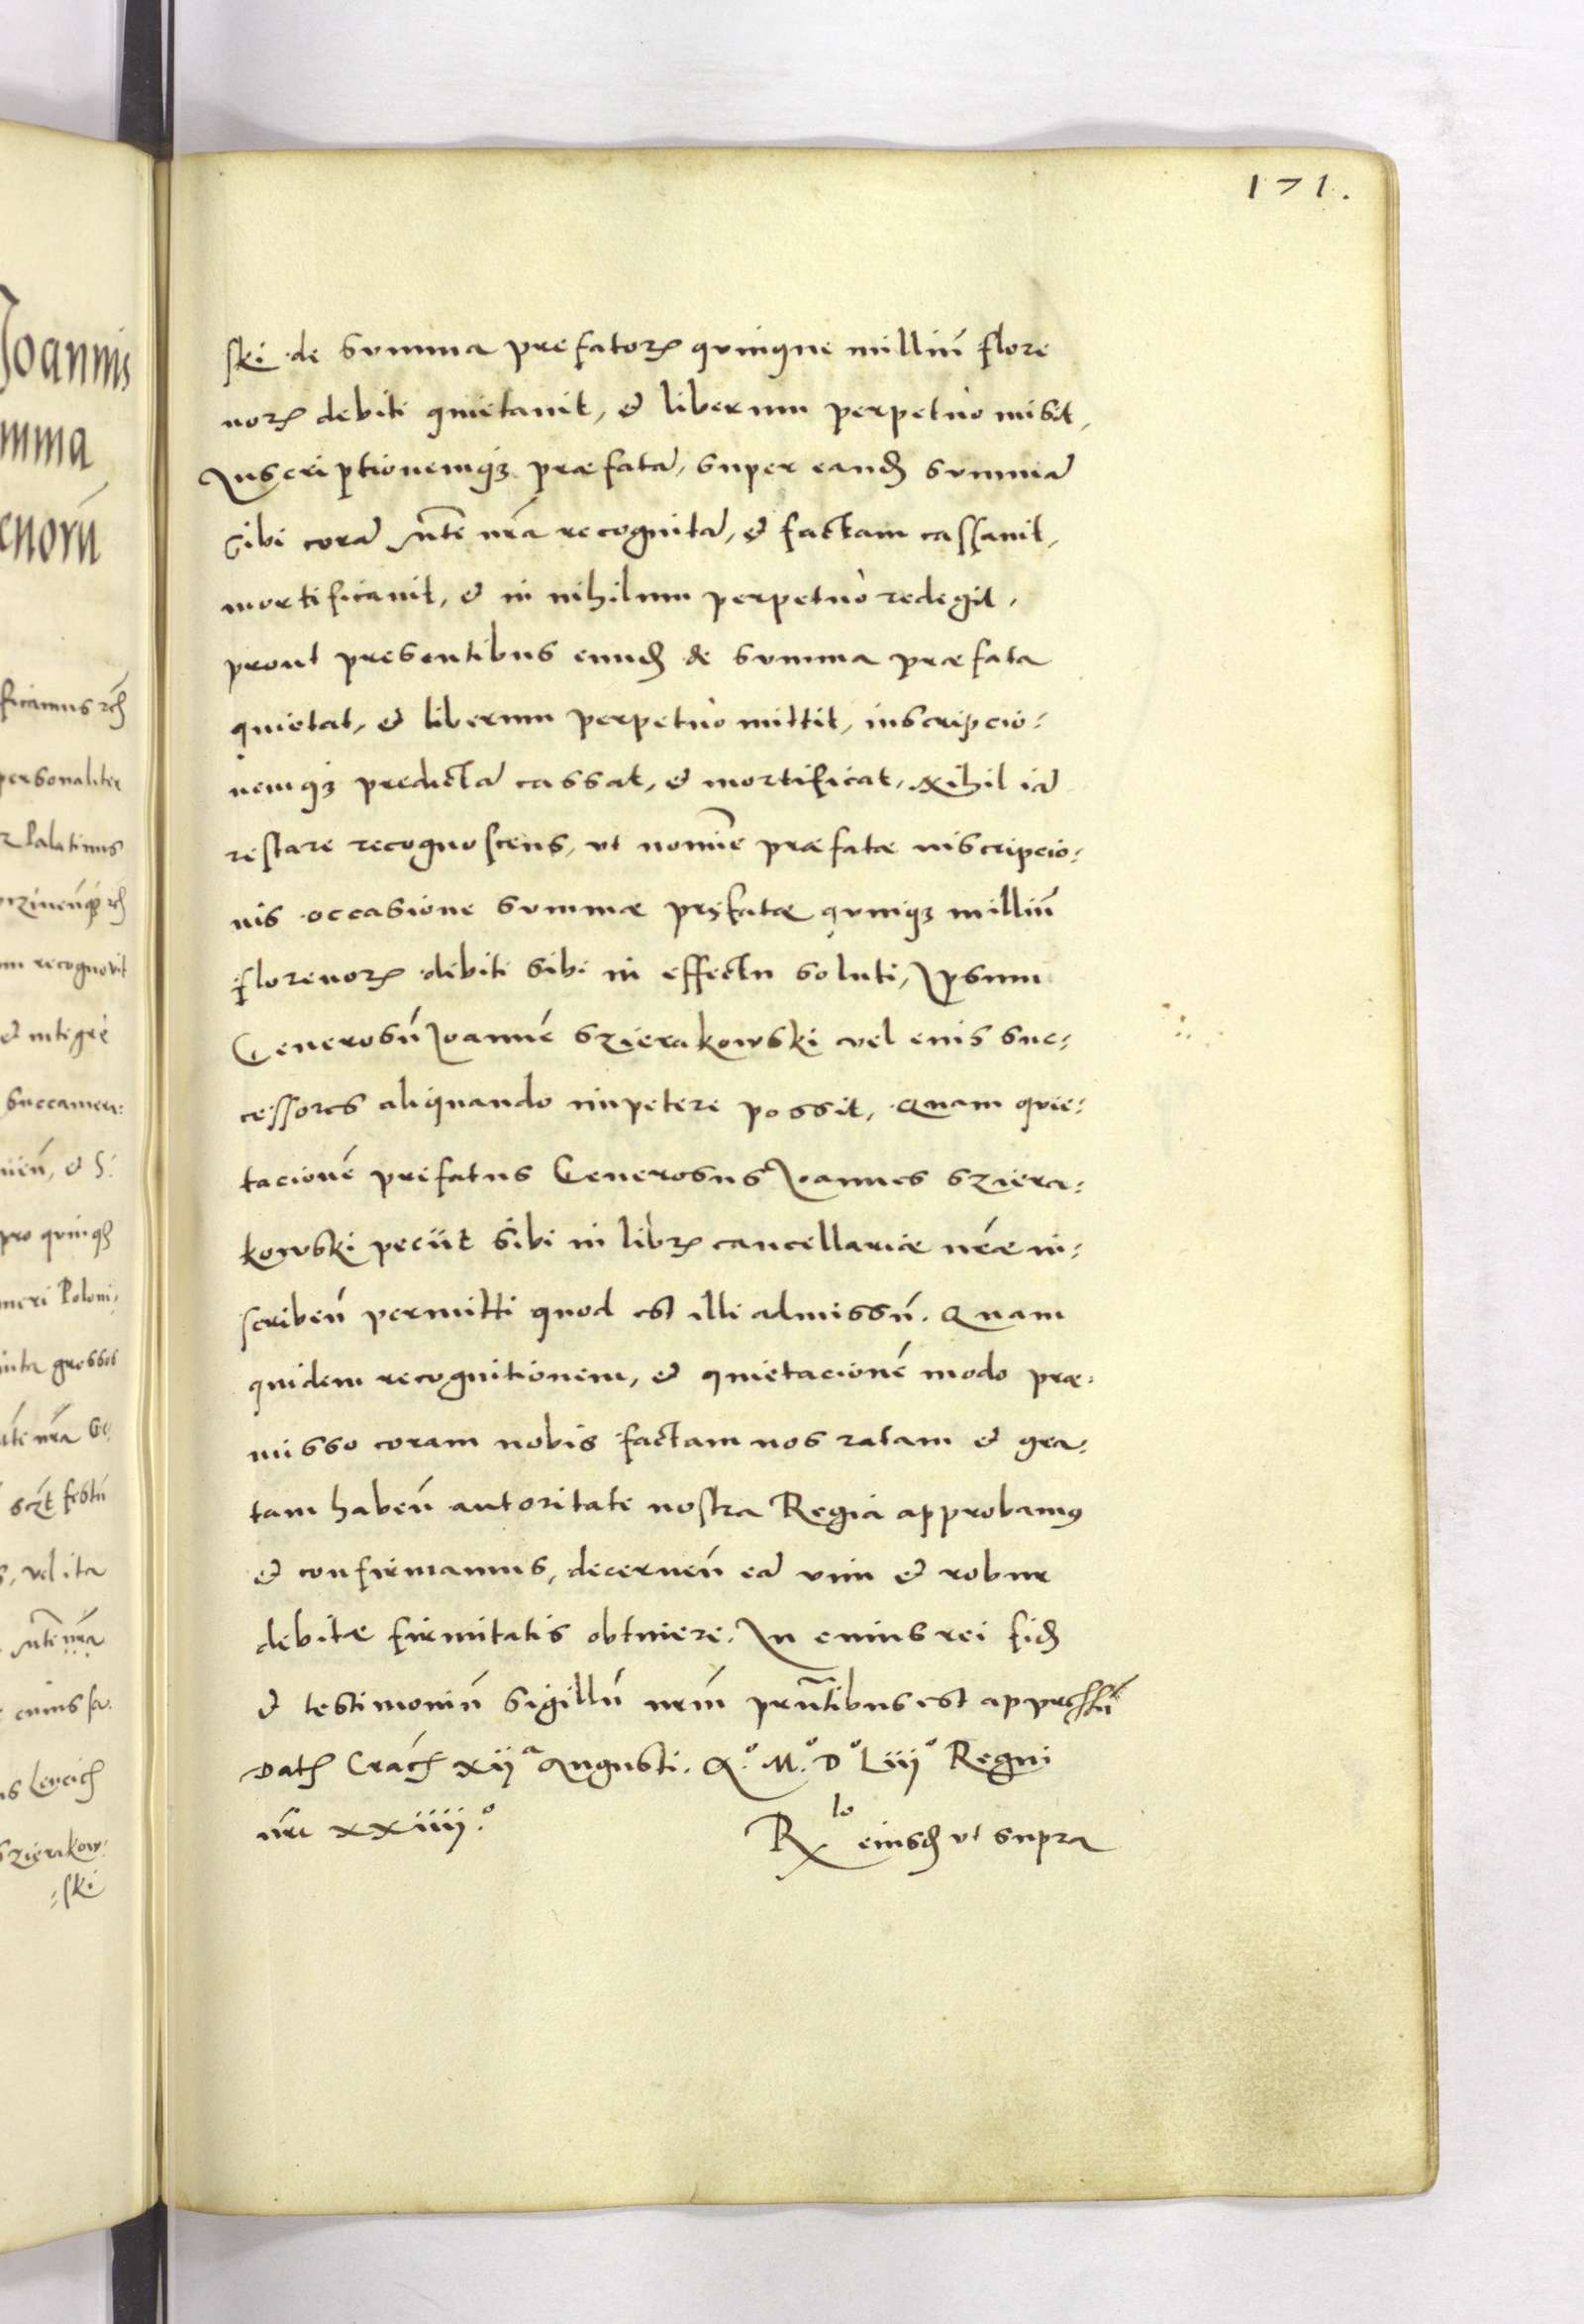 171.
ski de summa prefatoꝝ quinque milliū flore
noꝝ debiti quietauit, et liberum perpetuo misit,
Inscriptionemqꝫ præfatā, super eandē summā
sibi corā Mte nrā recognitā, et factam cassauit,
mortificauit, et in nihilum perpetuò redegit,
prout presentibus eundē de summa præfata
quietat, et liberum perpetuò mittit, inscripcio:
nemqꝫ predictā cassat, et mortificat, Nihil iā
restare recognoscens, vt nomīe præfatæ inscripcio:
nis occasione summæ pręfatæ quinqꝫ milliū
florenoꝝ debiti sibi in effectu soluti, Ipsum
Generosū Joannē Szierakowski vel eius suc:
cessores aliquando impetere possit, Quam quie:
tacionē prefatus Generosus Joannes Sziera:
kowski peciit sibi in libꝝ cancellariæ nrǣ in:
scribeñ permitti quod est illi admissū. Quam
quidem recognitionem, et quietacionē modo præ:
misso coram nobis factam nos ratam et gra:
tam habeñ autoritate nostra Regia approbamꝯ
et confirmamus, decerneñ eā vim et robur
debitæ firmitatis obtinere. In cuius rei fidē
et testimoniū sigillū nrm̄ prn̄tibus est appressū
Datꝭ Cracꝭ xijᵃ Augusti. Aᵒ. Mᵒ. Dᵒ Liijᵒ Regni
nrī xxiiijᵒ.
Rˡᵒ eiusdꝭ vt supra
Joannis
mma
enorū
ficamus
personaliter
Palatinus
recognouit
et integrè
Succamer:
et S:
pro quinqꝫ
meri Poloni,
grossos
nrā Ge:
festū
vel ita
Mte nrā
cuius
Szierakow:
:ski